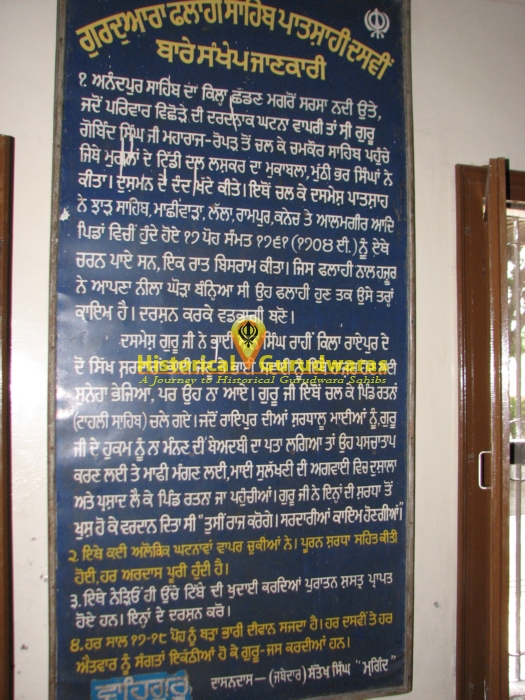 ਗੁਰਦੁਆਰਾ ਫਲਾਹੀ ਸਾਹਿਬ ਪਾਤਸ਼ਾਹੀ ਦਸਵੀਂ
ਬਾਰੇ ਸੰਖੇਪ ਜਾਣਕਾਰੀ
੧ ਅਨੰਦਪੁਰ ਸਾਹਿਬ ਦਾ ਕਿਲਾ ਛੱਡਣ ਮਗਰੋਂ ਸਰਸਾ ਨਦੀ ਉਤੇ,
ਜਦੋਂ ਪਰਿਵਾਰ ਵਿਛੋੜੇ ਦੀ ਦਰਦਨਾਕ ਘਟਨਾ ਵਾਪਰੀ ਤਾਂ ਸੀ ਗੁਰੂ
ਗੋਬਿੰਦ ਸਿੰਘ ਜੀ ਮਹਾਰਾਜ-ਰੋਪੜ ਤੋਂ ਚਲ ਕੇ ਚਮਕੌਰ ਸਾਹਿਬ ਪਹੁੰਚੇ
ਜਿਥੇ ਮੁਗਲਾਂ ਦੇ ਟਿੱਡੀ ਦਲ ਲਸ਼ਕਰ ਦਾ ਮੁਕਾਬਲਾ, ਮੁੱਠੀ ਭਰ ਸਿੰਘਾਂ ਨੇ
ਕੀਤਾ। ਦੁਸ਼ਮਨ ਦੇ ਦੰਦ ਖੱਟੇ ਕੀਤੇ। ਇਥੋਂ ਚਲ ਕੇ ਦਸਮੇਸ਼ ਪਾਤਸ਼ਾਹ
ਨੇ ਝਾੜ ਸਾਹਿਬ, ਮਾਛੀਵਾੜਾ, ਲੱਲਾ, ਰਾਮਪੁਰ, ਕਨੇਚ ਤੇ ਆਲਮਗੀਰ ਆਦਿ
ਪਿੰਡਾਂ ਵਿਚੀਂ ਹੁੰਦੇ ਹੋਏ ੧੭ ਪੋਹ ਸੰਮਤ ੧੭੬੧ (੧੭੦੪ ਈ.) ਨੂੰ ਏਥੇ
ਚਰਨ ਪਾਏ ਸਨ, ਇਕ ਰਾਤ ਬਿਸਰਾਮ ਕੀਤਾ। ਜਿਸ ਫਲਾਹੀ ਨਾਲ ਹਜ਼ੂਰ
ਨੇ ਆਪਣਾ ਨੀਲਾ ਘੋੜਾ ਬੰਨ੍ਹਿਆ ਸੀ ਉਹ ਫਲਾਹੀ ਹੁਣ ਤਕ ਉਸੇ ਤਰ੍ਹਾਂ
ਕਾਇਮ ਹੈ। ਦਰਸ਼ਨ ਕਰਕੇ ਵਡਭਾਗੀ ਬਣੋ।
ਦਸਮੇਸ਼ ਗੁਰੂ ਜੀ ਨੇ ਭਾਈ ਸਿੰਘ ਰਾਹੀਂ ਕਿਲਾ ਰਾਏਪੁਰ ਦੇ
ਦੋ ਸਿੱਖ
Historical Gurudwaras
A Journey to Historical Gurudwara Sahibs
ਸੁਨੇਹਾ ਭੇਜਿਆ, ਪਰ ਉਹ ਨਾ ਆਏ। ਗੁਰੂ ਜੀ ਇਥੋਂ ਚਲ ਕੇ ਪਿੰਡ ਰਤਨਾਂ
(ਟਾਹਲੀ ਸਾਹਿਬ) ਚਲੇ ਗਏ। ਜਦੋਂ ਰਾਇਪੁਰ ਦੀਆਂ ਸ਼ਰਧਾਲੂ ਮਾਈਆਂ ਨੂੰ, ਗੁਰੂ
ਜੀ ਦੇ ਹੁਕਮ ਨੂੰ ਨਾ ਮੰਨਣ ਦੀ ਬੇਅਦਬੀ ਦਾ ਪਤਾ ਲਗਿਆ ਤਾਂ ਉਹ ਪਸਚਾਤਾਪ
ਕਰਣ ਲਈ ਤੇ ਮਾਫੀ ਮੰਗਣ ਲਈ, ਮਾਈ ਸੁਲੱਖਣੀ ਦੀ ਅਗਵਾਈ ਵਿਚ ਦੁਸ਼ਾਲਾ
ਅਤੇ ਪ੍ਰਸ਼ਾਦ ਲੈ ਕੇ ਪਿੰਡ ਰਤਨਾ ਜਾ ਪਹੁੰਚੀਆਂ। ਗੁਰੂ ਜੀ ਨੇ ਇਨ੍ਹਾਂ ਦੀ ਸ਼ਰਧਾ ਤੋਂ
ਖੁਸ਼ ਹੋ ਕੇ ਵਰਦਾਨ ਦਿਤਾ ਸੀ “ਤੁਸੀਂ ਰਾਜ ਕਰੋਗੇ। ਸਰਦਾਰੀਆਂ ਕਾਇਮ ਹੋਣਗੀਆਂ”
੨. ਇਥੇ ਕਈ ਅਲੌਕਿਕ ਘਟਨਾਵਾਂ ਵਾਪਰ ਚੁਕੀਆਂ ਨੇ। ਪੂਰਨ ਸ਼ਰਧਾ ਸਹਿਤ ਕੀਤੀ
ਹੋਈ, ਹਰ ਅਰਦਾਸ ਪੂਰੀ ਹੁੰਦੀ ਹੈ।
੩. ਇਥੇ ਨੇੜਿਓਂ ਹੀ ਉਚੇ ਟਿੱਬੇ ਦੀ ਖੁਦਾਈ ਕਰਦਿਆਂ ਪੁਰਾਤਨ ਸ਼ਸਤ੍ਰ ਪ੍ਰਾਪਤ
ਹੋਏ ਹਨ। ਇਨ੍ਹਾਂ ਦੇ ਦਰਸ਼ਨ ਕਰੋ।
੪. ਹਰ ਸਾਲ ੧੭-੧੮ ਪੋਹ ਨੂੰ ਬੜਾ ਭਾਰੀ ਦੀਵਾਨ ਸਜਦਾ ਹੈ। ਹਰ ਦਸਵੀਂ ਤੇ ਹਰ
ਐਤਵਾਰ ਨੂੰ ਸੰਗਤਾਂ ਇਕੱਠੀਆਂ ਹੋ ਕੇ ਗੁਰੂ-ਜਸ ਕਰਦੀਆਂ ਹਨ।
ਦਾਸਨਦਾਸ— (ਜਥੇਦਾਰ) ਸੰਤੋਖ ਸਿੰਘ “ਮ੍ਰਗਿੰਦ”
ਵਾਹਿਗੁਰੂ